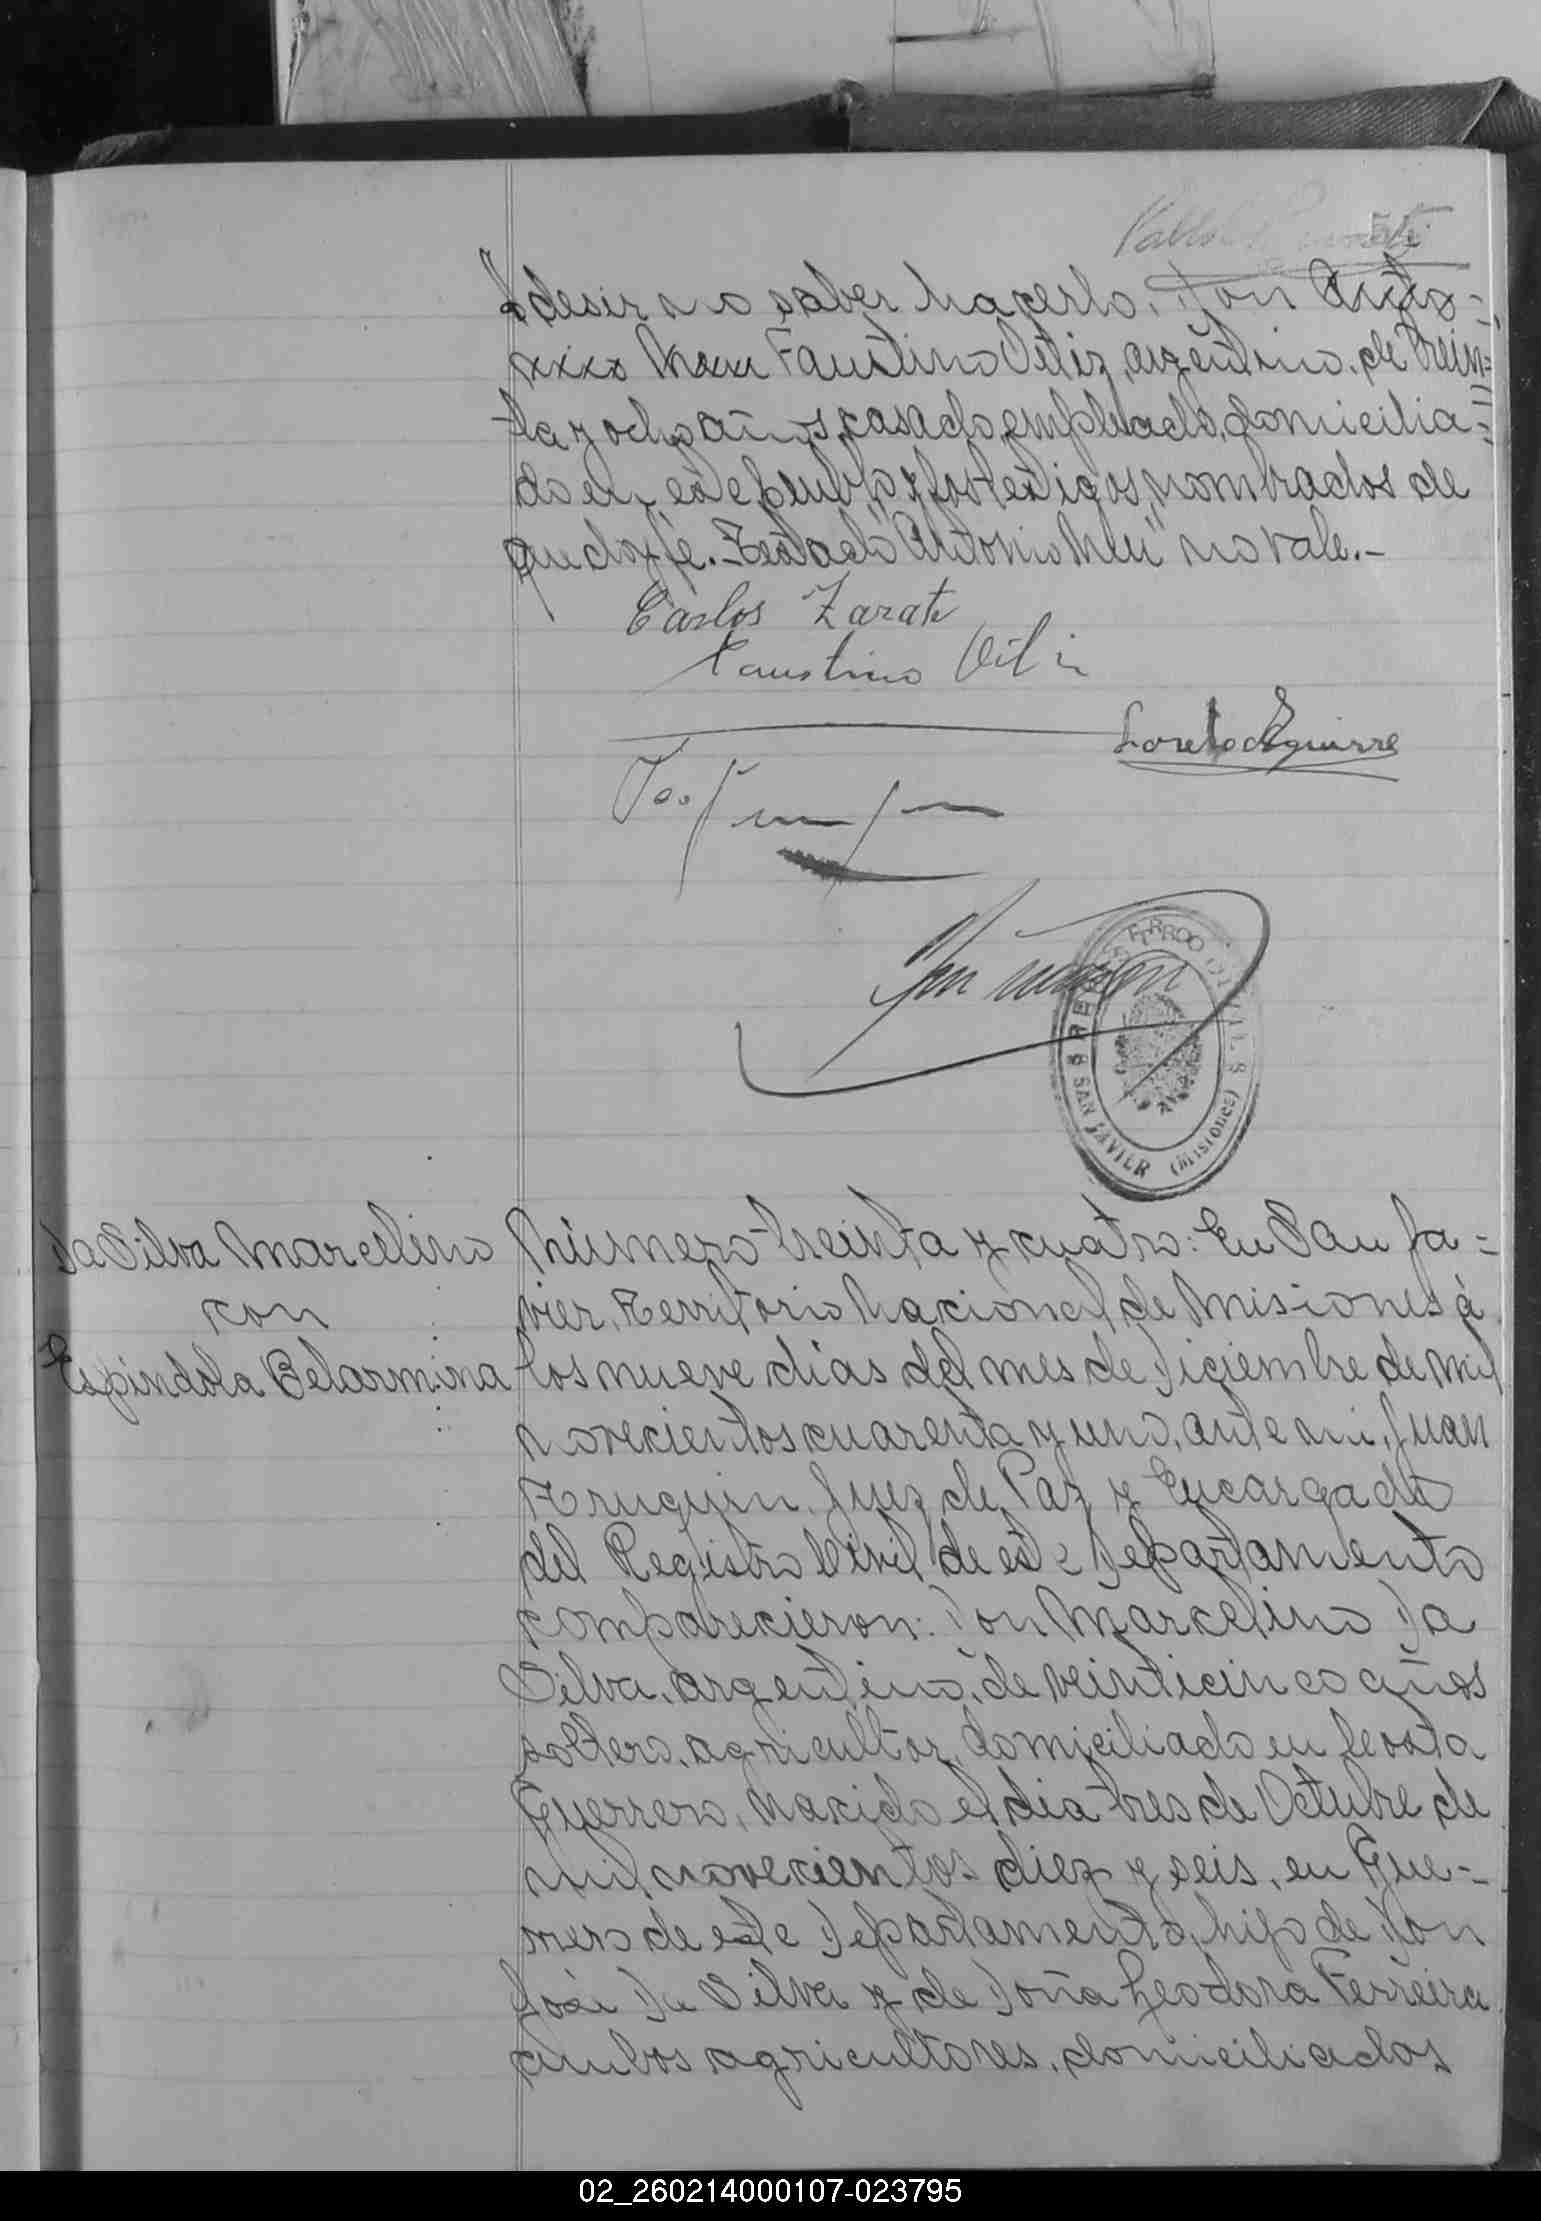 desir no saber hacerlo, Don Anto=
nio Meu Faustino Vetiz, argentino, de trein=
ta y ocho años, casado, empleado, domicilia=
do en este pueblo y los testigos nombrados de
que doy fé.- Testado "Antonio Meu" no vale.-
Carlos Zarate
Faustino
Loreto Aguirre
REGISTRO CIVIL
SAN JAVIER (Misiones)
Da Silva Marcelino
con
Espindola Belarmina
Número treinta y cuatro: En San Ja=
vier, Territorio Nacional de Misiones á
los nueve dias del mes de Diciembre de mil
novecientos cuarenta y uno, ante mi, Juan
Truquin, Juez de Paz y Encargado
del Registro Civil de este Departamento
comparecieron: Don Marcelino Da
Silva, argentino, de veinticinco años
soltero, agricultor, domiciliado en Costa
Guerrero, nacido el dia tres de Octubre de
mil novecientos diez y seis, en Gue=
rrero de este Departamento, hijo de Don
José Da Silva y de Doña Leodora Ferreira
ambos agricultores, domiciliados
02_260214000107-023795